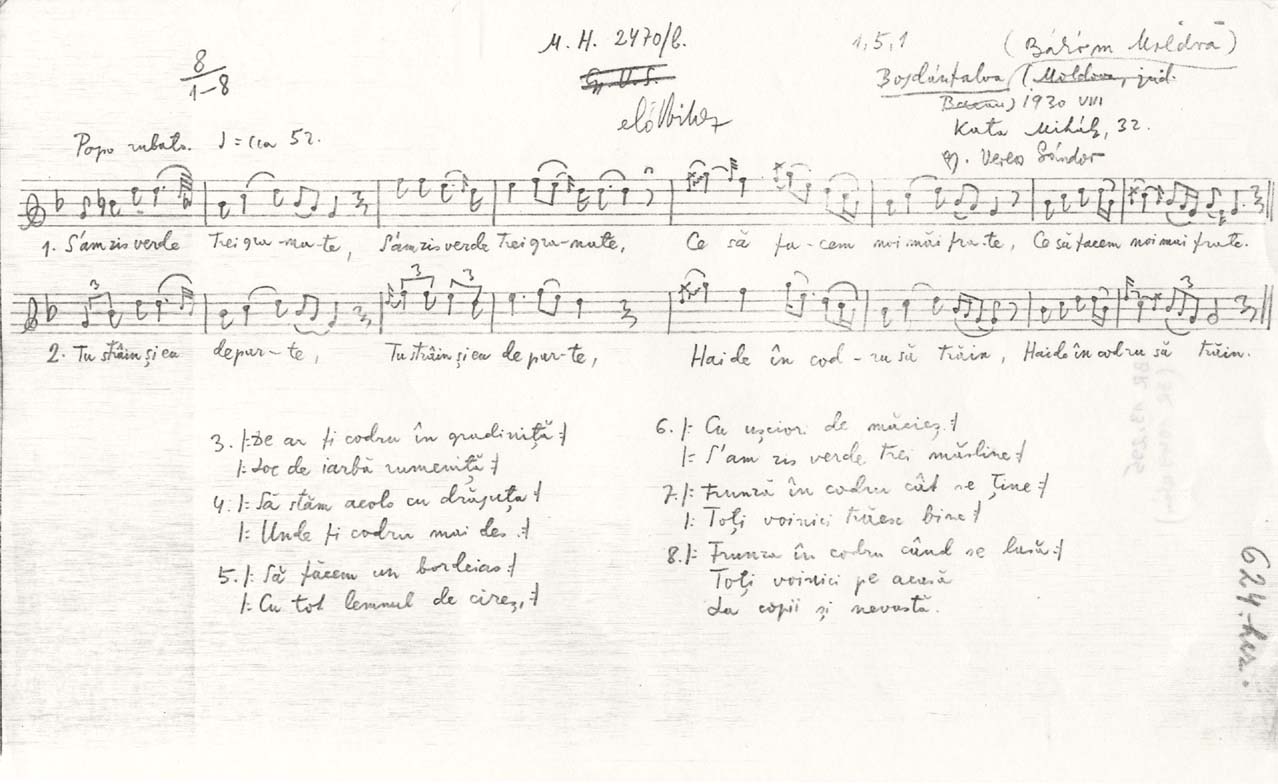 M. H. 2470/b.
1, 5, 1
8
1–8
Bogdánfalva (Moldova, jud.
Bacau) 1930 VIII
Kata Mihály, 32.
gy. Veress Sándor
♩ = cca 52.
1. S'am zis verde trei gra-na-te, S'am zis verde trei gra-nate, Ce să fa-cem noi măi fra-te, Ce să facem noi mai frate.
3 3 3 3
2. Tu străin și eu depar-te, Tu străin și eu de par-te, Hai de în cod-ru să trăin, Haide în codru să trăin.
3. |: De ar fi codru în gradiniță :|
|: Loc de iarbă rumeniță :|
4. |: Să stăm acolo cu drăguța :|
|: Unde fi codru mai des :|
5. |: Să făcem un bordeias :|
|: Cu tot lemnul de cireș, :|
6. |: Cu ușciori de măcieș :|
|: S'am zis verde trei măsline :|
7. |: Frunză în codru cât se ține :|
|: Toți voinici trăesc bine :|
8. |: Frunza în codru când se lasă :|
Toți voinici pe acasă
La copii și nevastă.
624.